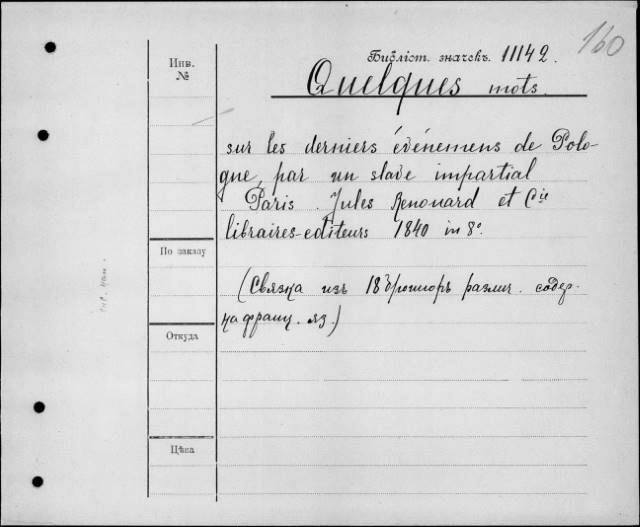 160
Библіот. значекъ. 11142.
Инв.
№
Quelques mots.
sur les derniers événemens de Polo-
gne, par un slave impartial
Paris. Jules Renouard et Cie
libraires-editeurs 1840 in 8º.
По заказу
(Связка изъ 18 брошюръ размич. содер.
на франц. яз.)
Откуда
Цѣна